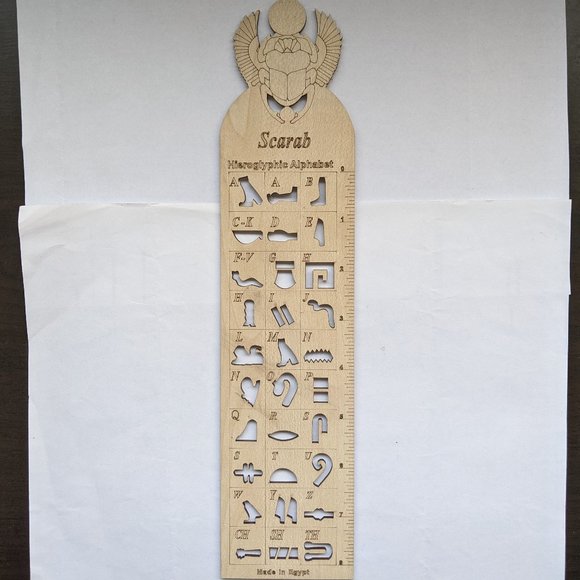 Scarab
Hieroglyphic Alphabet
0
A A B
1
C-K D E
F-V G H
2
H I J
3
L M N
4
N O P
Q R S
5
S T U
6
W Y Z
7
CH SH TH
8
Made in Egypt